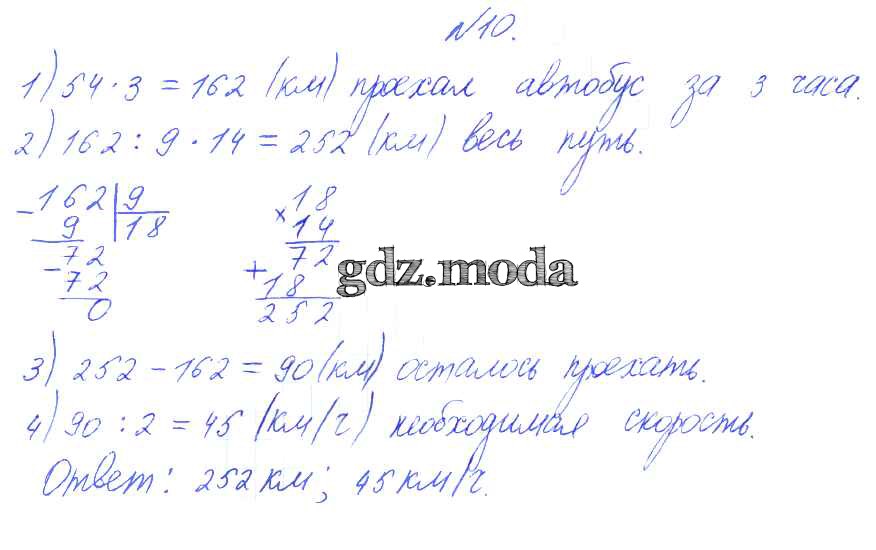 №10.
1) 54 · 3 = 162 (км) проехал автобус за 3 часа.
2) 162 : 9 · 14 = 252 (км) весь путь.
- 162 | 9
9 | 18
- 72
72
0
× 18
14
+ 72
18
252
gdz.moda
3) 252 - 162 = 90 (км) осталось проехать.
4) 90 : 2 = 45 (км/ч) необходимая скорость.
Ответ: 252 км; 45 км/ч.